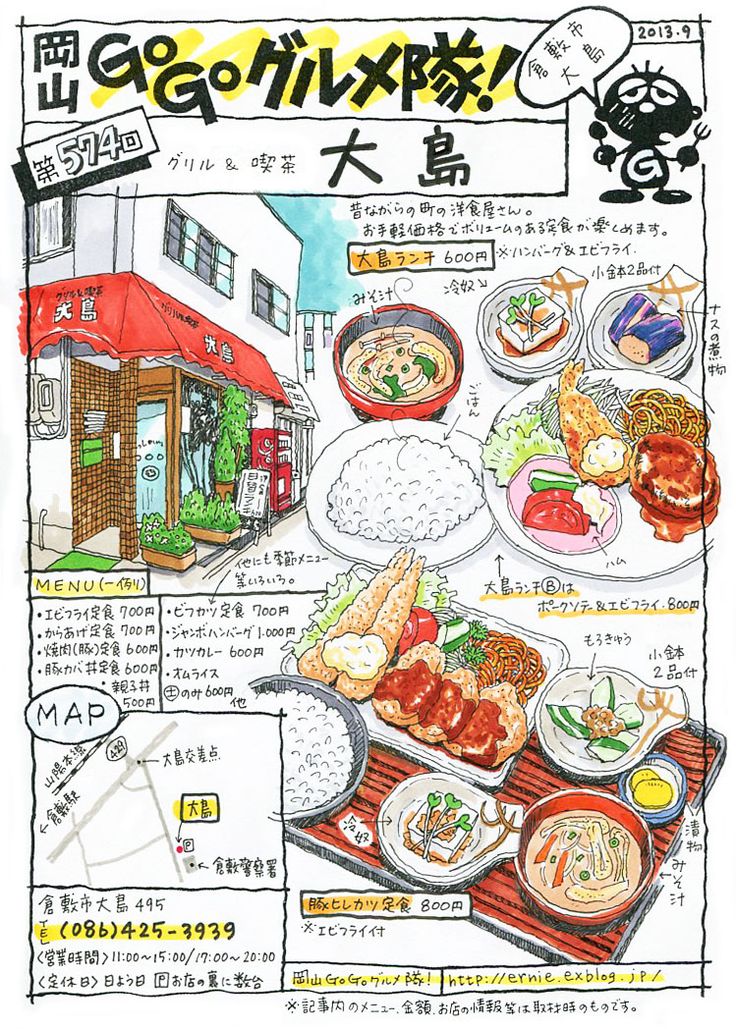 2013.9
岡山GoGoグルメ隊!
倉敷市
大島
第574回
グリル & 喫茶 大島
昔ながらの町の洋食屋さん。
お手軽価格でボリュームのある定食が楽しめます。
大島ランチ 600円
※ハンバーグ&エビフライ.
小鉢2品付
みそ汁
冷奴
ナスの煮物
ごはん
グリル&喫茶
大島
グリル&喫茶
大島
日替ランチ
ハム
大島ランチⒷは
ポークソテー&エビフライ.800円
他にも季節メニュー
等いろいろ。
MENU(一例)
・エビフライ定食 700円
・からあげ定食 700円
・焼肉(豚)定食 600円
・豚カバ丼定食 600円
・親子丼
500円
・ビフカツ定食 700円
・ジャンボハンバーグ 1.000円
・カツカレー 600円
・オムライス
㊏のみ600円 他
もろきゅう
小鉢
2品付
冷奴
漬物
みそ汁
豚ヒレカツ定食 800円
※エビフライ付
MAP
山陽本線
429
大島交差点
倉敷駅
大島
P
倉敷警察署
倉敷市大島 495
TEL (086)425-3939
<営業時間> 11:00~15:00/17:00~20:00
<定休日> 日よう日 Pお店の裏に数台
岡山GoGoグルメ隊! http://ernie.exblog.jp/
※記事内のメニュー、金額、お店の情報等は取材時のものです。